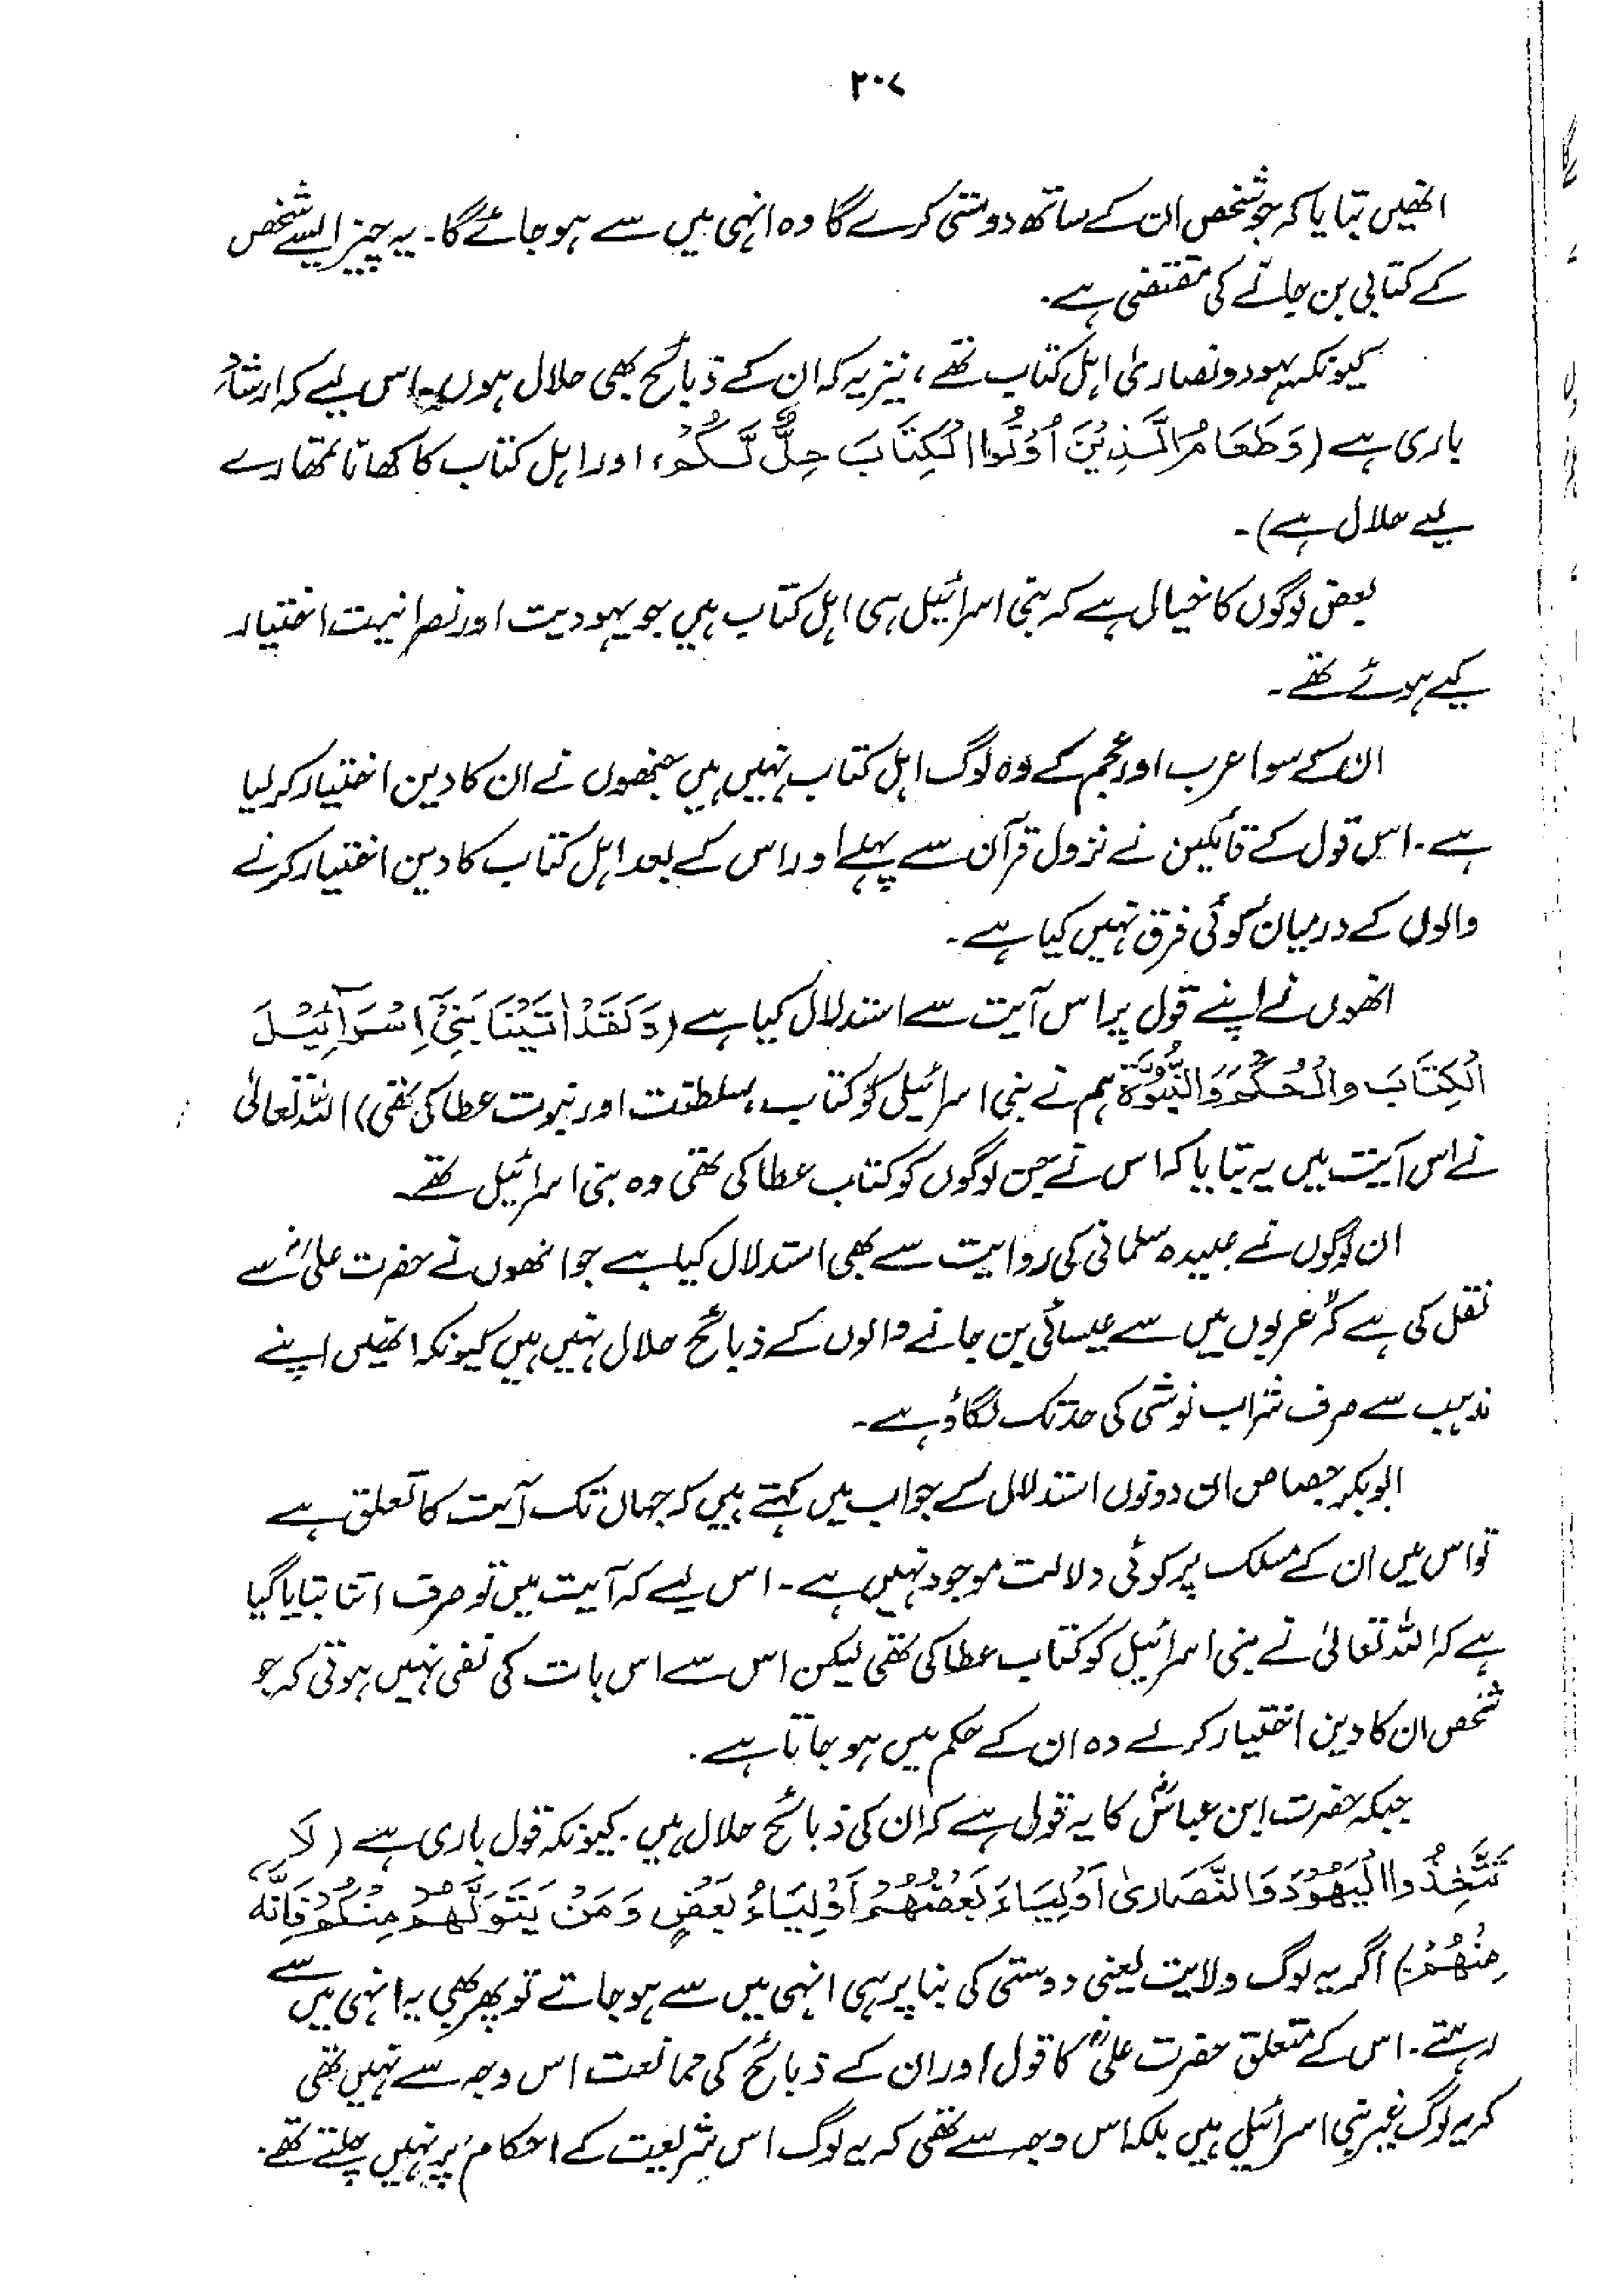 ۲۰۷
انھیں بتایا کہ جو شخص ان کے ساتھ دوستی کرے گا وہ انہی میں سے ہو جائے گا۔ یہ چیز ایسے شخص
کے کتابی بن جانے کی مقتضی ہے۔
کیونکہ یہود و نصاریٰ اہل کتاب تھے، نیز یہ کہ ان کے ذبائح بھی حلال ہوں۔ اس لیے کہ ارشاد
باری ہے (وَطَعَامُ الَّذِیْنَ اُوْتُوا الْکِتَابَ حِلٌّ لَّکُمْ، اور اہل کتاب کا کھانا تمھارے
لیے حلال ہے)۔
بعض لوگوں کا خیال ہے کہ بنی اسرائیل ہی اہل کتاب ہیں جو یہودیت اور نصرانیت اختیار
کیے ہوئے تھے۔
ان کے سوا عرب اور عجم کے وہ لوگ اہل کتاب نہیں ہیں جنھوں نے ان کا دین اختیار کر لیا
ہے۔ اس قول کے قائلین نے نزول قرآن سے پہلے اور اس کے بعد اہل کتاب کا دین اختیار کرنے
والوں کے درمیان کوئی فرق نہیں کیا ہے۔
انھوں نے اپنے قول پر اس آیت سے استدلال کیا ہے (وَلَقَدْ اٰتَیْنَا بَنِیْٓ اِسْرَآئِیْلَ
الْکِتَابَ وَالْحُکْمَ وَالنُّبُوَّةَ ہم نے بنی اسرائیل کو کتاب، سلطنت اور نبوت عطا کی تھی) اللہ تعالیٰ
نے اس آیت میں یہ بتایا کہ اس نے جن لوگوں کو کتاب عطا کی تھی وہ بنی اسرائیل تھے۔
ان لوگوں نے عبیدہ سلمانی کی روایت سے بھی استدلال کیا ہے جو انھوں نے حضرت علیؓ سے
نقل کی ہے کہ "عربوں میں سے عیسائی بن جانے والوں کے ذبائح حلال نہیں ہیں کیونکہ انھیں اپنے
مذہب سے صرف شراب نوشی کی حد تک لگاؤ ہے۔
ابوبکر جصاص ان دونوں استدلال کے جواب میں کہتے ہیں کہ جہاں تک آیت کا تعلق ہے
تو اس میں ان کے مسلک پر کوئی دلالت موجود نہیں ہے۔ اس لیے کہ آیت میں تو صرف اتنا بتایا گیا
ہے کہ اللہ تعالیٰ نے بنی اسرائیل کو کتاب عطا کی تھی لیکن اس سے اس بات کی نفی نہیں ہوتی کہ جو
شخص ان کا دین اختیار کر لے وہ ان کے حکم میں ہو جاتا ہے۔
جبکہ حضرت ابن عباسؓ کا یہ قول ہے کہ ان کی ذبائح حلال ہیں۔ کیونکہ قول باری ہے (لَا
تَتَّخِذُوا الْیَهُوْدَ وَالنَّصَارٰی اَوْلِیَاءَ بَعْضُهُمْ اَوْلِیَاءُ بَعْضٍ وَمَنْ یَّتَوَلَّهُمْ مِنْکُمْ فَاِنَّهٗ
مِنْهُمْ) اگر یہ لوگ ولایت یعنی دوستی کی بنا پر ہی انہی میں سے ہو جاتے تو پھر بھی یہ انہی میں سے
رہتے۔ اس کے متعلق حضرت علیؓ کا قول اور ان کے ذبائح کی ممانعت اس وجہ سے نہیں تھی
کہ یہ لوگ غیر بنی اسرائیل ہیں بلکہ اس وجہ سے تھی کہ یہ لوگ اس شریعت کے احکام پر نہیں چلتے تھے۔